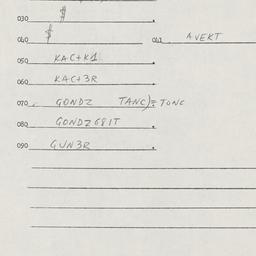 030 $
040 $ 041 AVEKT
050 KAC+K1
060 KAC+3R
070 GONDZ TANC)=TONC
080 GONDZ681T
090 GUN3R